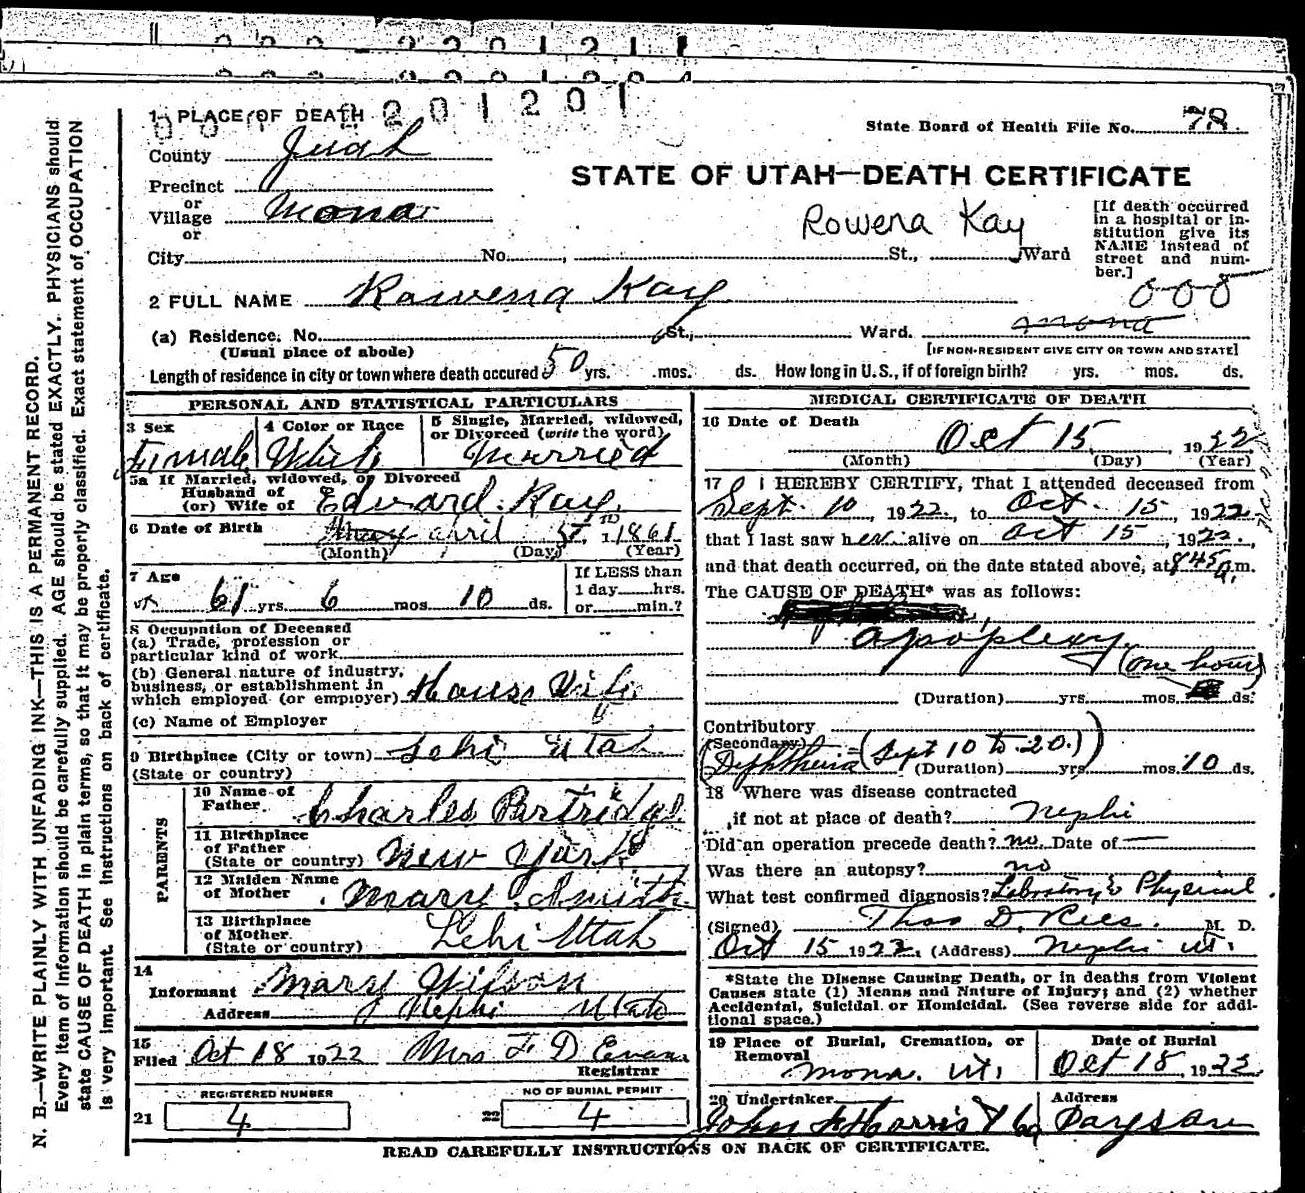 2201201
1 PLACE OF DEATH
State Board of Health File No. 78
County Juab
STATE OF UTAH—DEATH CERTIFICATE
Precinct
or
Village Mona
or
Rowena Kay
[If death occurred in a hospital or institution give its NAME instead of street and number.]
City No. , St., Ward
2 FULL NAME Rowena Kay
(a) Residence. No. St., Ward. Mona
(Usual place of abode)
[IF NON-RESIDENT GIVE CITY OR TOWN AND STATE]
Length of residence in city or town where death occured 50 yrs. mos. ds. How long in U.S., if of foreign birth? yrs. mos. ds.
PERSONAL AND STATISTICAL PARTICULARS
3 Sex Female
4 Color or Race White
5 Single, Married, widowed, or Divorced (write the word) Married
5a If Married, widowed, or Divorced
Husband of
(or) Wife of Edward Kay
6 Date of Birth May April 5th 1861
(Month) (Day) (Year)
7 Age
61 yrs. 6 mos 10 ds.
If LESS than
1 day hrs.
or min.?
8 Occupation of Deceased
(a) Trade, profession or
particular kind of work
(b) General nature of industry,
business, or establishment in
which employed (or employer) House Wife
(c) Name of Employer
9 Birthplace (City or town) Lehi Utah
(State or country)
PARENTS
10 Name of
Father. Charles Partridge
11 Birthplace
of Father
(State or country) New York
12 Maiden Name
of Mother Mary Smith
13 Birthplace
of Mother.
(State or country) Lehi Utah
14
Informant Mary Wilson
Address Nephi Utah
15
Filed Oct 18 1922 Mrs F D Evans
Registrar
REGISTERED NUMBER
21 4
NO OF BURIAL PERMIT
22 4
MEDICAL CERTIFICATE OF DEATH
16 Date of Death
Oct 15, 1922
(Month) (Day) (Year)
17 I HEREBY CERTIFY, That I attended deceased from
Sept. 10, 1922, to Oct. 15, 1922.
that I last saw her alive on Oct 15, 1922,
and that death occurred, on the date stated above, at 8 45 a.m.
The CAUSE OF DEATH* was as follows:
apoplexy.
(one hour)
(Duration) yrs. mos. ds.
Contributory
(Secondary) (Sept 10 to 20.)
Diphtheria (Duration) yrs. mos. 10 ds.
18 Where was disease contracted
if not at place of death? Nephi
Did an operation precede death? no. Date of —
Was there an autopsy? no
What test confirmed diagnosis? Laboratory & Physical
(Signed) Thos D. Rees. M. D.
Oct 15 1922. (Address) Nephi Ut.
*State the Disease Causing Death, or in deaths from Violent
Causes state (1) Means and Nature of Injury; and (2) whether
Accidental, Suicidal or Homicidal. (See reverse side for addi-
tional space.)
19 Place of Burial, Cremation, or
Removal
Mona. Ut.
Date of Burial
Oct 18, 1922
20 Undertaker
Address
Payson
READ CAREFULLY INSTRUCTIONS ON BACK OF CERTIFICATE.
N. B.—WRITE PLAINLY WITH UNFADING INK—THIS IS A PERMANENT RECORD.
Every item of information should be carefully supplied. AGE should be stated EXACTLY. PHYSICIANS should
state CAUSE OF DEATH in plain terms, so that it may be properly classified. Exact statement of OCCUPATION
is very important. See instructions on back of certificate.